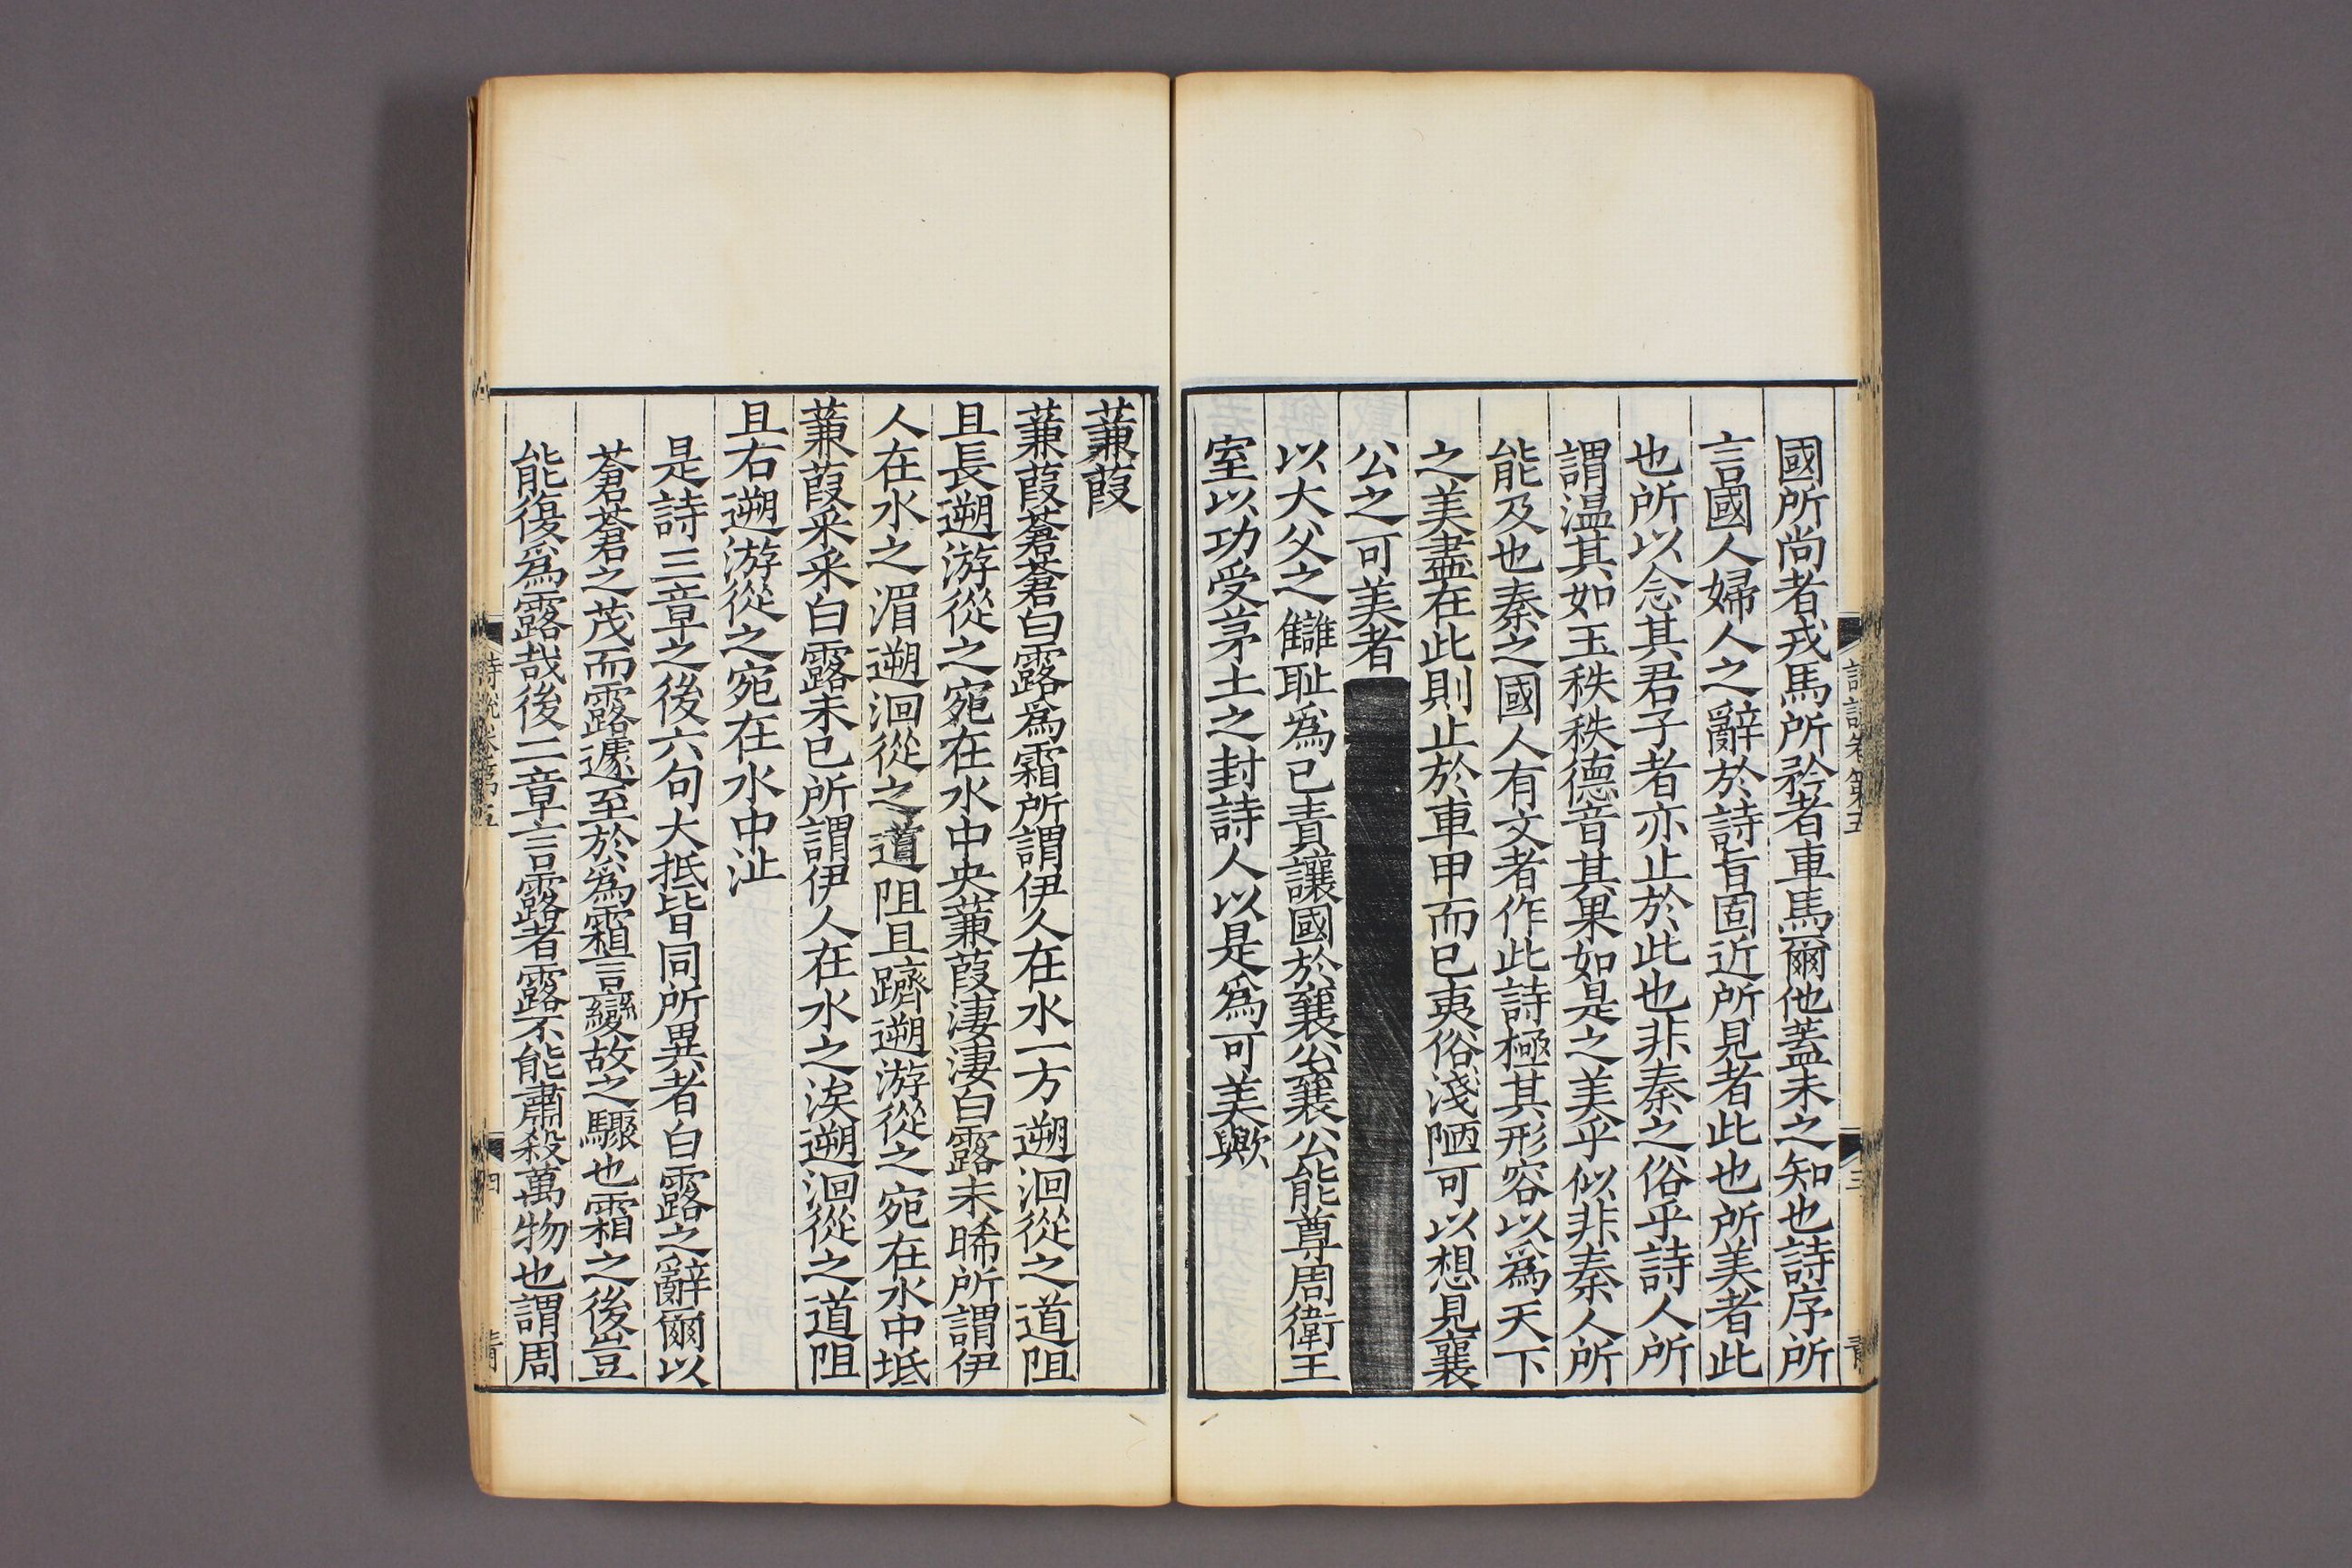 國所尚者戎馬所矜者車馬爾他蓋未之知也詩序所
言國人婦人之辭於詩旨固近所見者此也所美者此
也所以念其君子者亦止於此也非秦之俗乎詩人所
謂温其如玉秩秩德音其果如是之美乎似非秦人所
能及也秦之國人有文者作此詩極其形容以爲天下
之美盡在此則止於車甲而已夷俗淺陋可以想見襄
公之可美者
以大父之讎耻爲已責讓國於襄公襄公能尊周衛王
室以功受茅土之封詩人以是爲可美歟
蒹葭
蒹葭蒼蒼白露爲霜所謂伊久在水一方遡洄從之道阻
且長遡游從之宛在水中央蒹葭淒淒白露未晞所謂伊
人在水之湄遡洄從之道阻且躋遡游從之宛在水中坻
蒹葭采采白露未已所謂伊人在水之涘遡洄從之道阻
且右遡游從之宛在水中沚
是詩三章之後六句大抵皆同所異者白露之辭爾以
蒼蒼之茂而露遽至於爲霜言變故之驟也霜之後豈
能復爲露哉後二章言露者露不能肅殺萬物也謂周
詩說卷第五
四